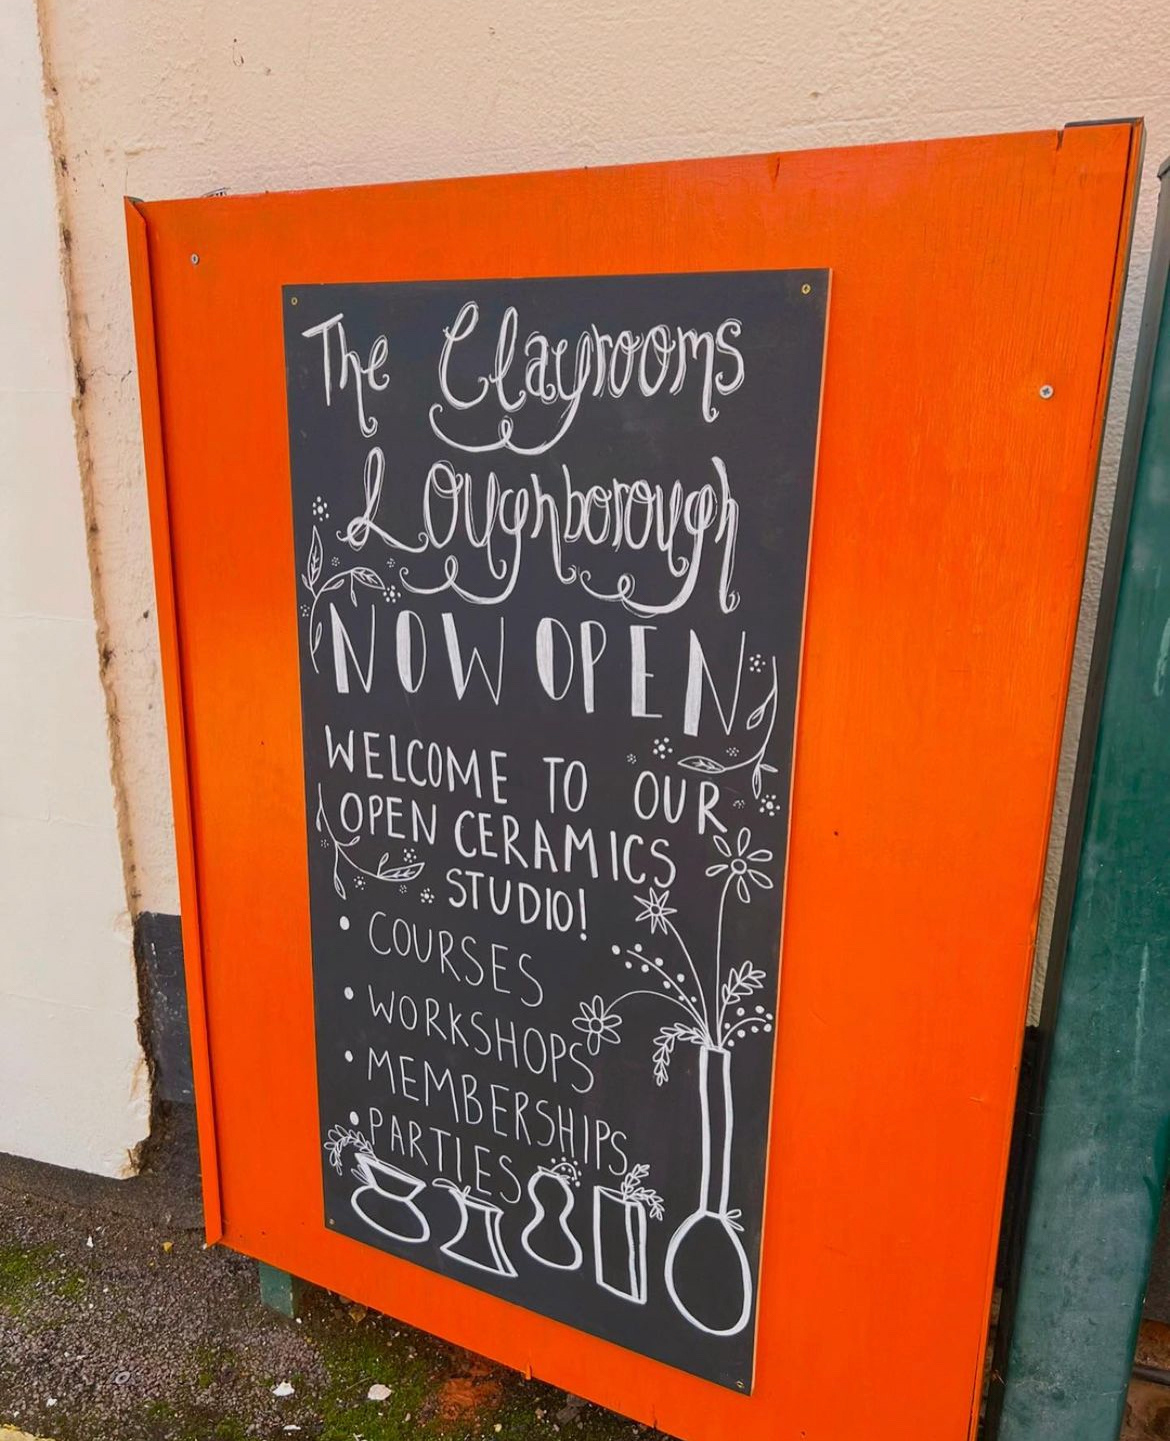 The Clayrooms
Loughborough
NOW OPEN
WELCOME TO OUR
OPEN CERAMICS
STUDIO!
• COURSES
• WORKSHOPS
• MEMBERSHIPS
• PARTIES